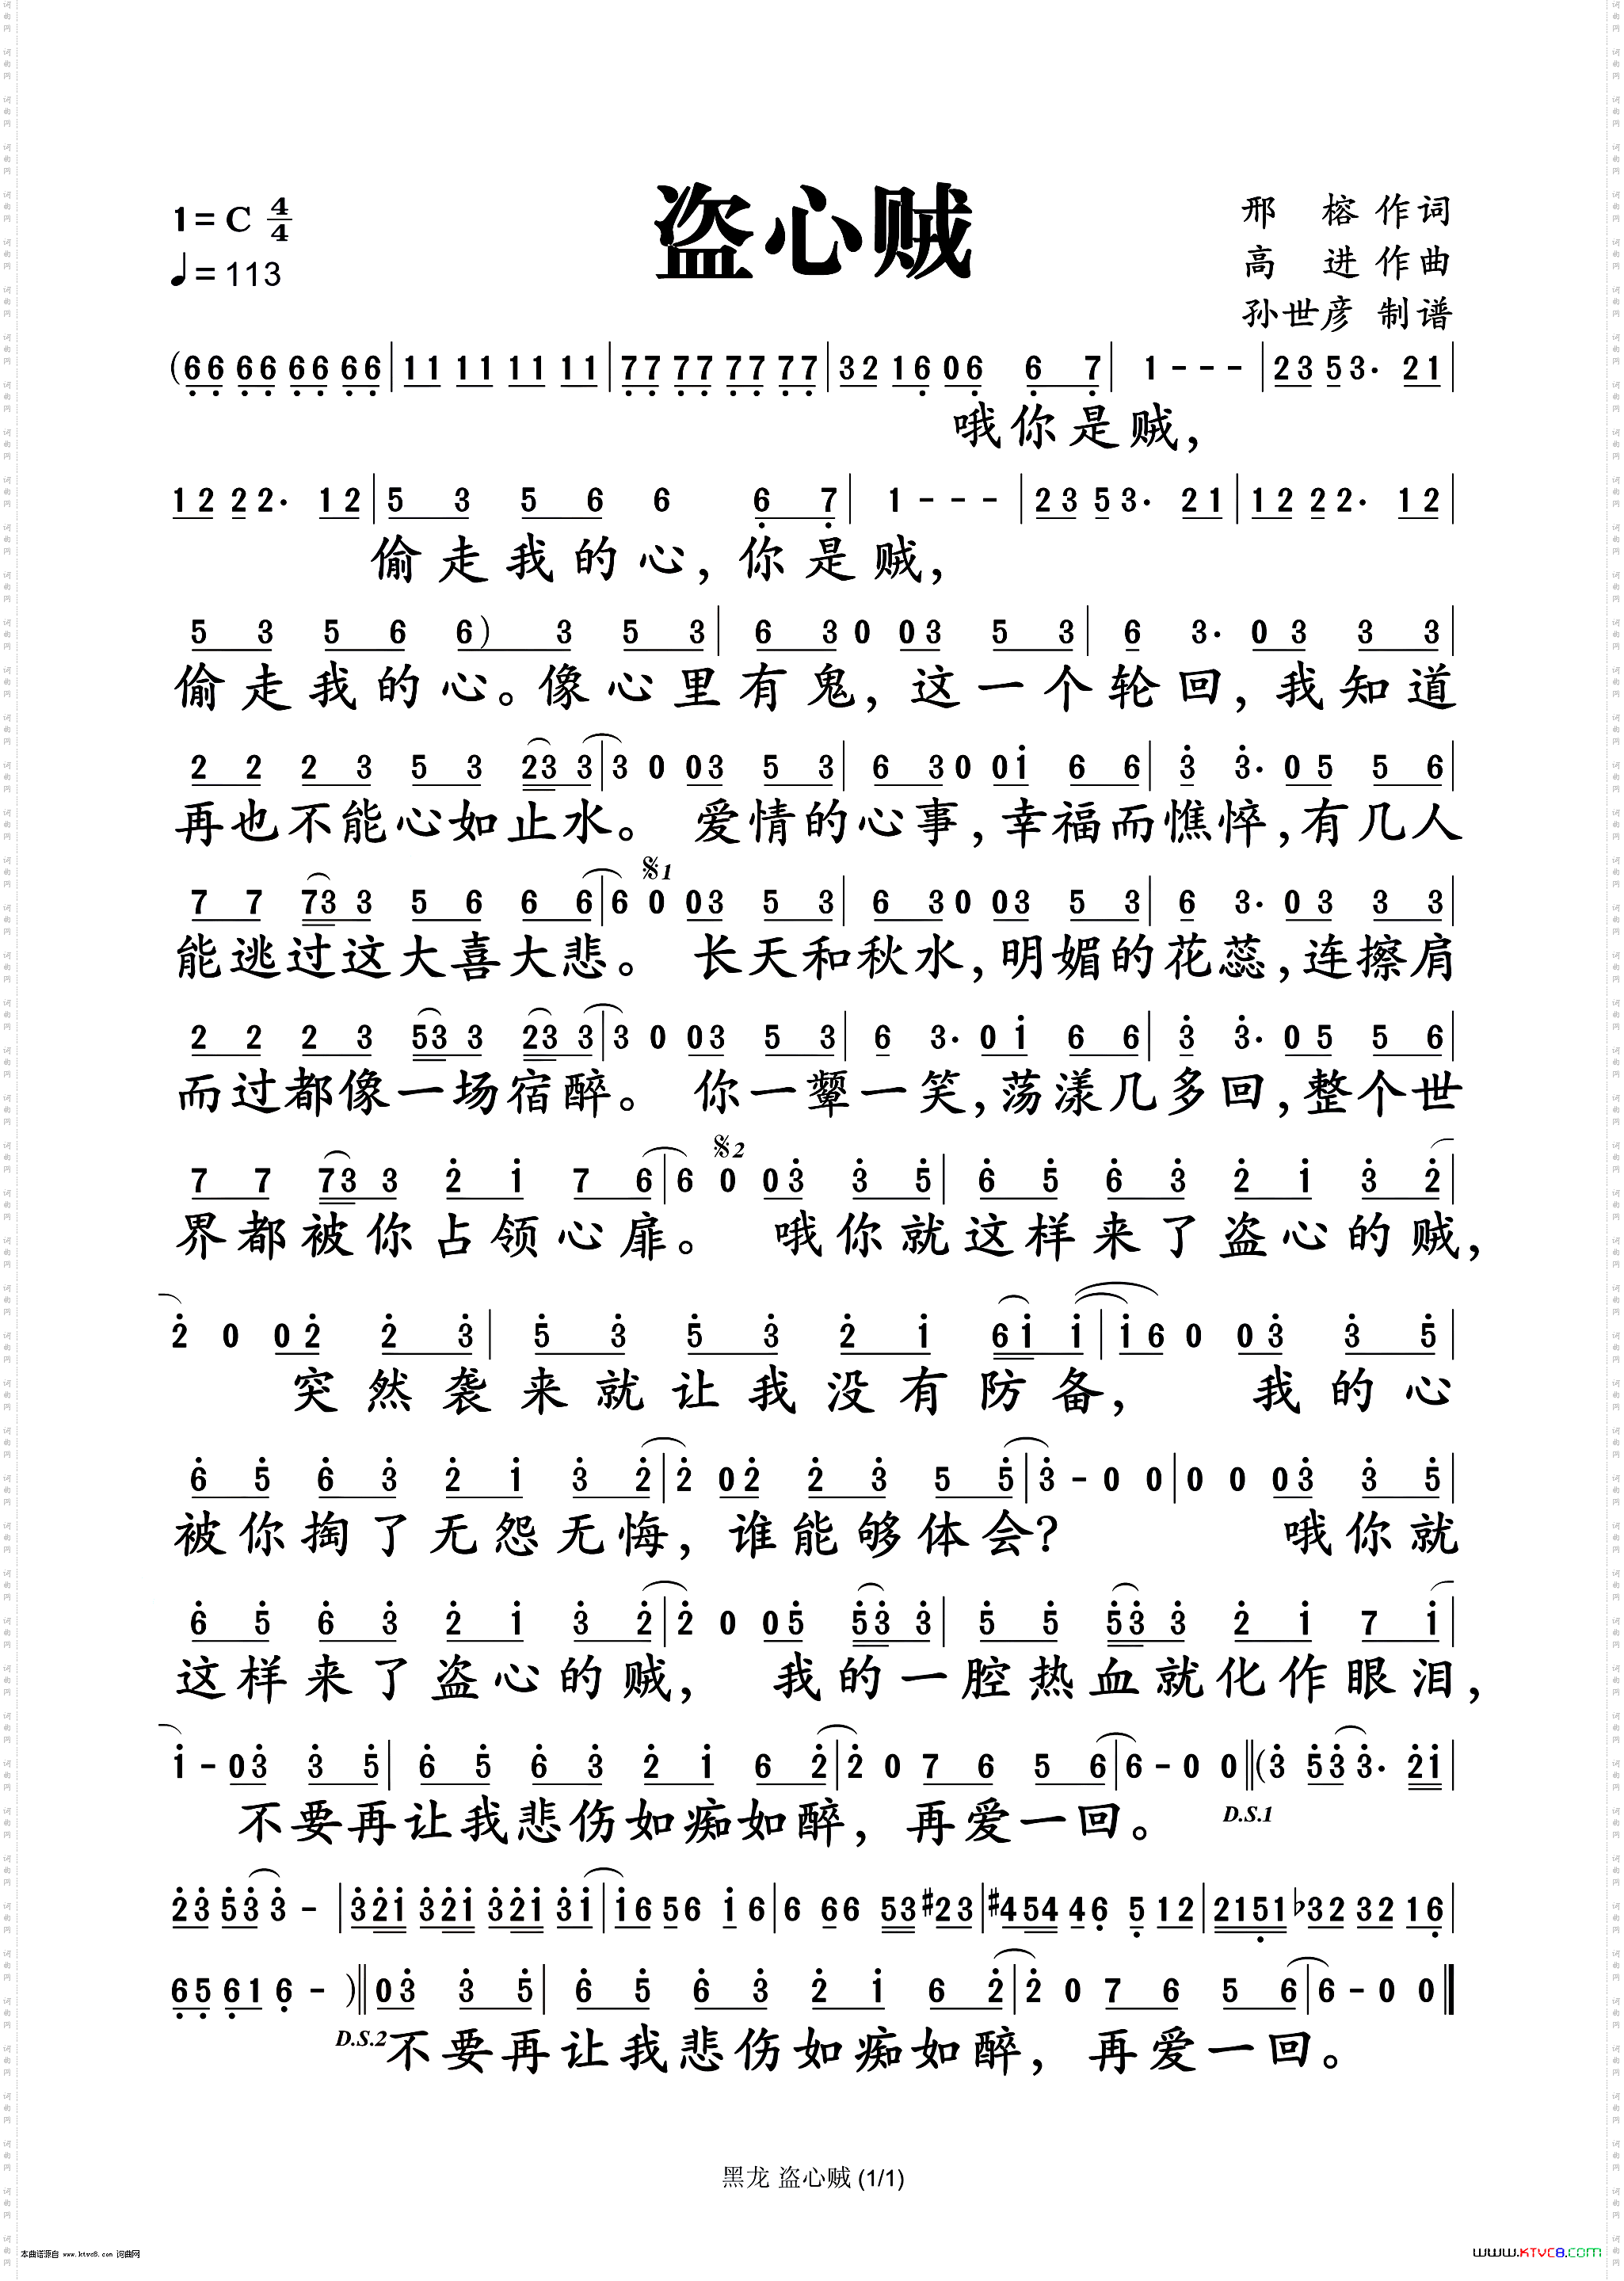 盗心贼
1=C 4/4
♩=113
邢 榕 作词
高 进 作曲
孙世彦 制谱
(66 66 66 66|11 11 11 11|77 77 77 77|32 16 06 6 7|1 - - -|23 53. 21|
哦你是贼，
12 22. 12|5 3 5 6 6 6 7|1 - - -|23 53. 21|12 22. 12|
偷走我的心，你是贼，
5 3 5 6 6) 3 5 3|6 3 0 03 5 3|6 3. 0 3 3 3|
偷走我的心。像心里有鬼，这一个轮回，我知道
2 2 2 3 5 3 23 3|3 0 03 5 3|6 30 01 6 6|3 3. 0 5 5 6|
再也不能心如止水。 爱情的心事，幸福而憔悴，有几人
𝄋1
7 7 73 3 5 6 6 6|6 0 03 5 3|6 30 03 5 3|6 3. 0 3 3 3|
能逃过这大喜大悲。 长天和秋水，明媚的花蕊，连擦肩
2 2 2 3 53 3 23 3|3 0 03 5 3|6 3. 0 1 6 6|3 3. 0 5 5 6|
而过都像一场宿醉。 你一颦一笑，荡漾几多回，整个世
𝄋2
7 7 73 3 2 1 7 6|6 0 03 3 5|6 5 6 3 2 1 3 2|
界都被你占领心扉。 哦你就这样来了盗心的贼，
2 0 02 2 3|5 3 5 3 2 1 61 1|16 0 03 3 5|
突然袭来就让我没有防备， 我的心
6 5 6 3 2 1 3 2|2 02 2 3 5 5|3 - 0 0|0 0 03 3 5|
被你掏了无怨无悔，谁能够体会? 哦你就
6 5 6 3 2 1 3 2|2 0 05 53 3|5 5 53 3 2 1 7 1|
这样来了盗心的贼， 我的一腔热血就化作眼泪，
1 - 03 3 5|6 5 6 3 2 1 6 2|2 0 7 6 5 6|6 - 0 0‖(3 53 3. 21|
不要再让我悲伤如痴如醉，再爱一回。 D.S.1
23 53 3 -|321 321 321 31|16 56 1 6|6 66 53 #23|#454 46 5 12|2151 b32 32 16|
65 61 6 - )‖03 3 5|6 5 6 3 2 1 6 2|2 0 7 6 5 6|6 - 0 0‖
D.S.2 不要再让我悲伤如痴如醉，再爱一回。
黑龙 盗心贼 (1/1)
本曲谱源自 www.ktvc8.com 词曲网
www.KTVC8.COM